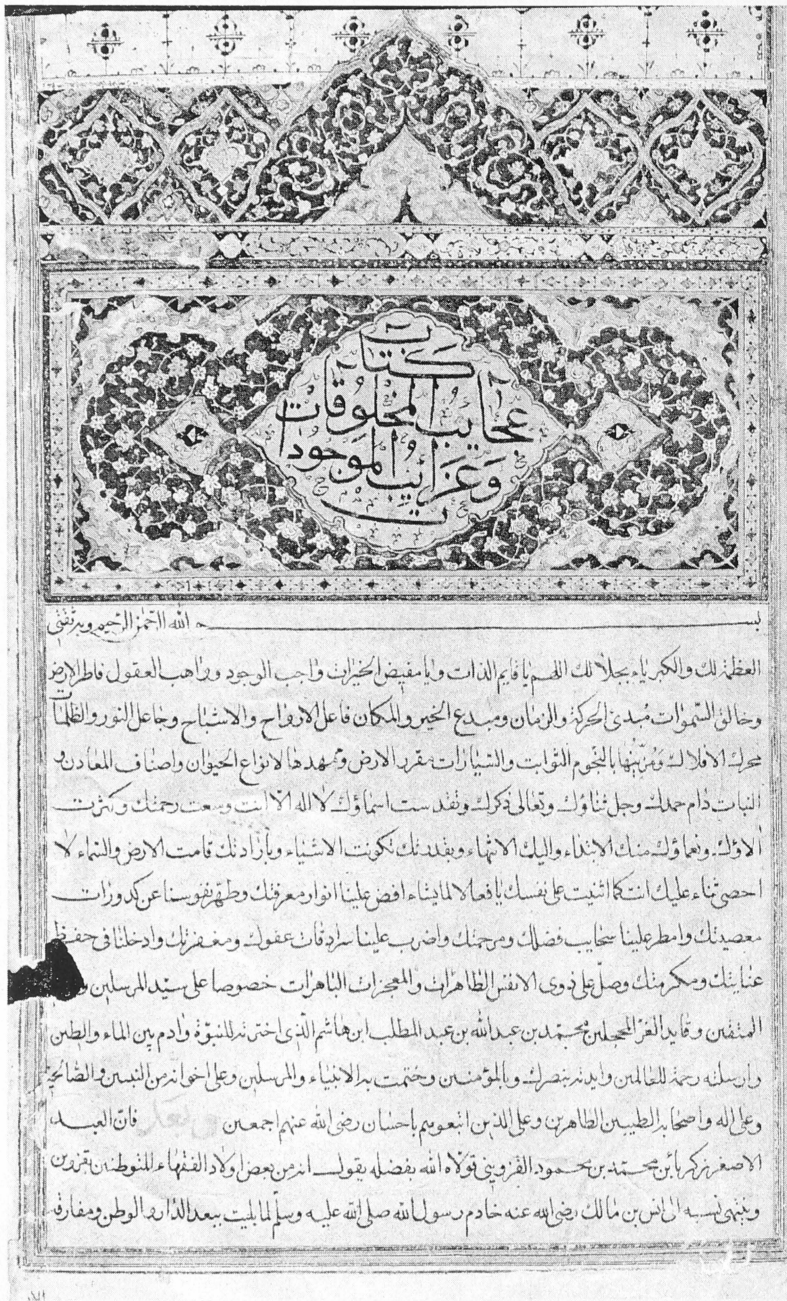 كتاب
عجايب المخلوقات
وغرائب الموجودات
بسم الله الرحمن الرحيم وبه ثقتي
العظمة لك والكبرياء بجلالك اللهم يا قايم الذات ويا مفيض الخيرات واجب الوجود وواهب العقول فاطر الارض
وخالق السموات مبدئ الحركة والزمان ومبدع الخير والمكان فاعل الارواح والاشباح وجاعل النور والظلمات
محرك الافلاك ومزينها بالنجوم الثوابت والسيارات مقرر الارض وممهدها لانواع الحيوان واصناف المعادن و
النبات دام حمدك وجل ثناؤك وتعالى ذكرك وتقدست اسماؤك لا اله الا انت وسعت رحمتك وكثرت
آلاؤك ونعماؤك منك الابتداء واليك الانتهاء وبقدرتك تكونت الاشياء وبارادتك قامت الارض والسماء لا
احصي ثناء عليك انت كما اثنيت على نفسك يا فعالا لما يشاء افض علينا انوار معرفتك وطهر نفوسنا عن كدورات
معصيتك وامطر علينا سحايب فضلك ومرحمتك واضرب علينا سرادقات عفوك ومغفرتك وادخلنا في حفظ
عنايتك ومكرمتك وصل على ذوى الانفس الطاهرات والمعجزات الباهرات خصوصا على سيد المرسلين
المتقين وقايد الغر المحجلين محمد بن عبد الله بن عبد المطلب ابن هاشم الذى اخترته للنبوة وادم بين الماء والطين
وارسلته رحمة للعالمين وايدته بنصرك وبالمؤمنين وختمت به الانبياء والمرسلين وعلى اخوانه من النبيين والصالحين
وعلى اله واصحابه الطيبين الطاهرين وعلى الذين اتبعوهم باحسان رضى الله عنهم اجمعين وبعد فان العبد
الاصغر زكريا بن محمد بن محمود القزويني تولاه الله بفضله يقول انه من بعض اولاد الفقهاء المتوطنين بقزوين
وينتهى نسبه الى انس بن مالك رضى الله عنه خادم رسول الله صلى الله عليه وسلم لما بليت ببعد الدار والوطن ومفارقة